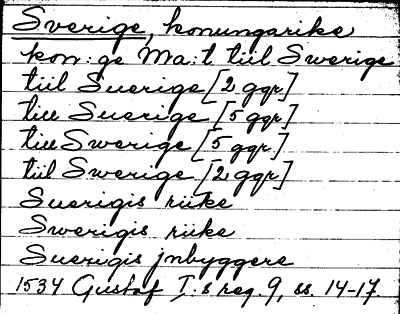 Sverige, konungarike
kon:ge Ma:t tiil Swerige
tiil Suerige [2 ggr]
till Suerige [5 ggr]
till Swerige [5 ggr]
tiil Swerige [2 ggr]
Suerigis riike
Swerigis riike
Suerigis jnbyggere
1534 Gustaf I:s reg. 9, ss. 14-17